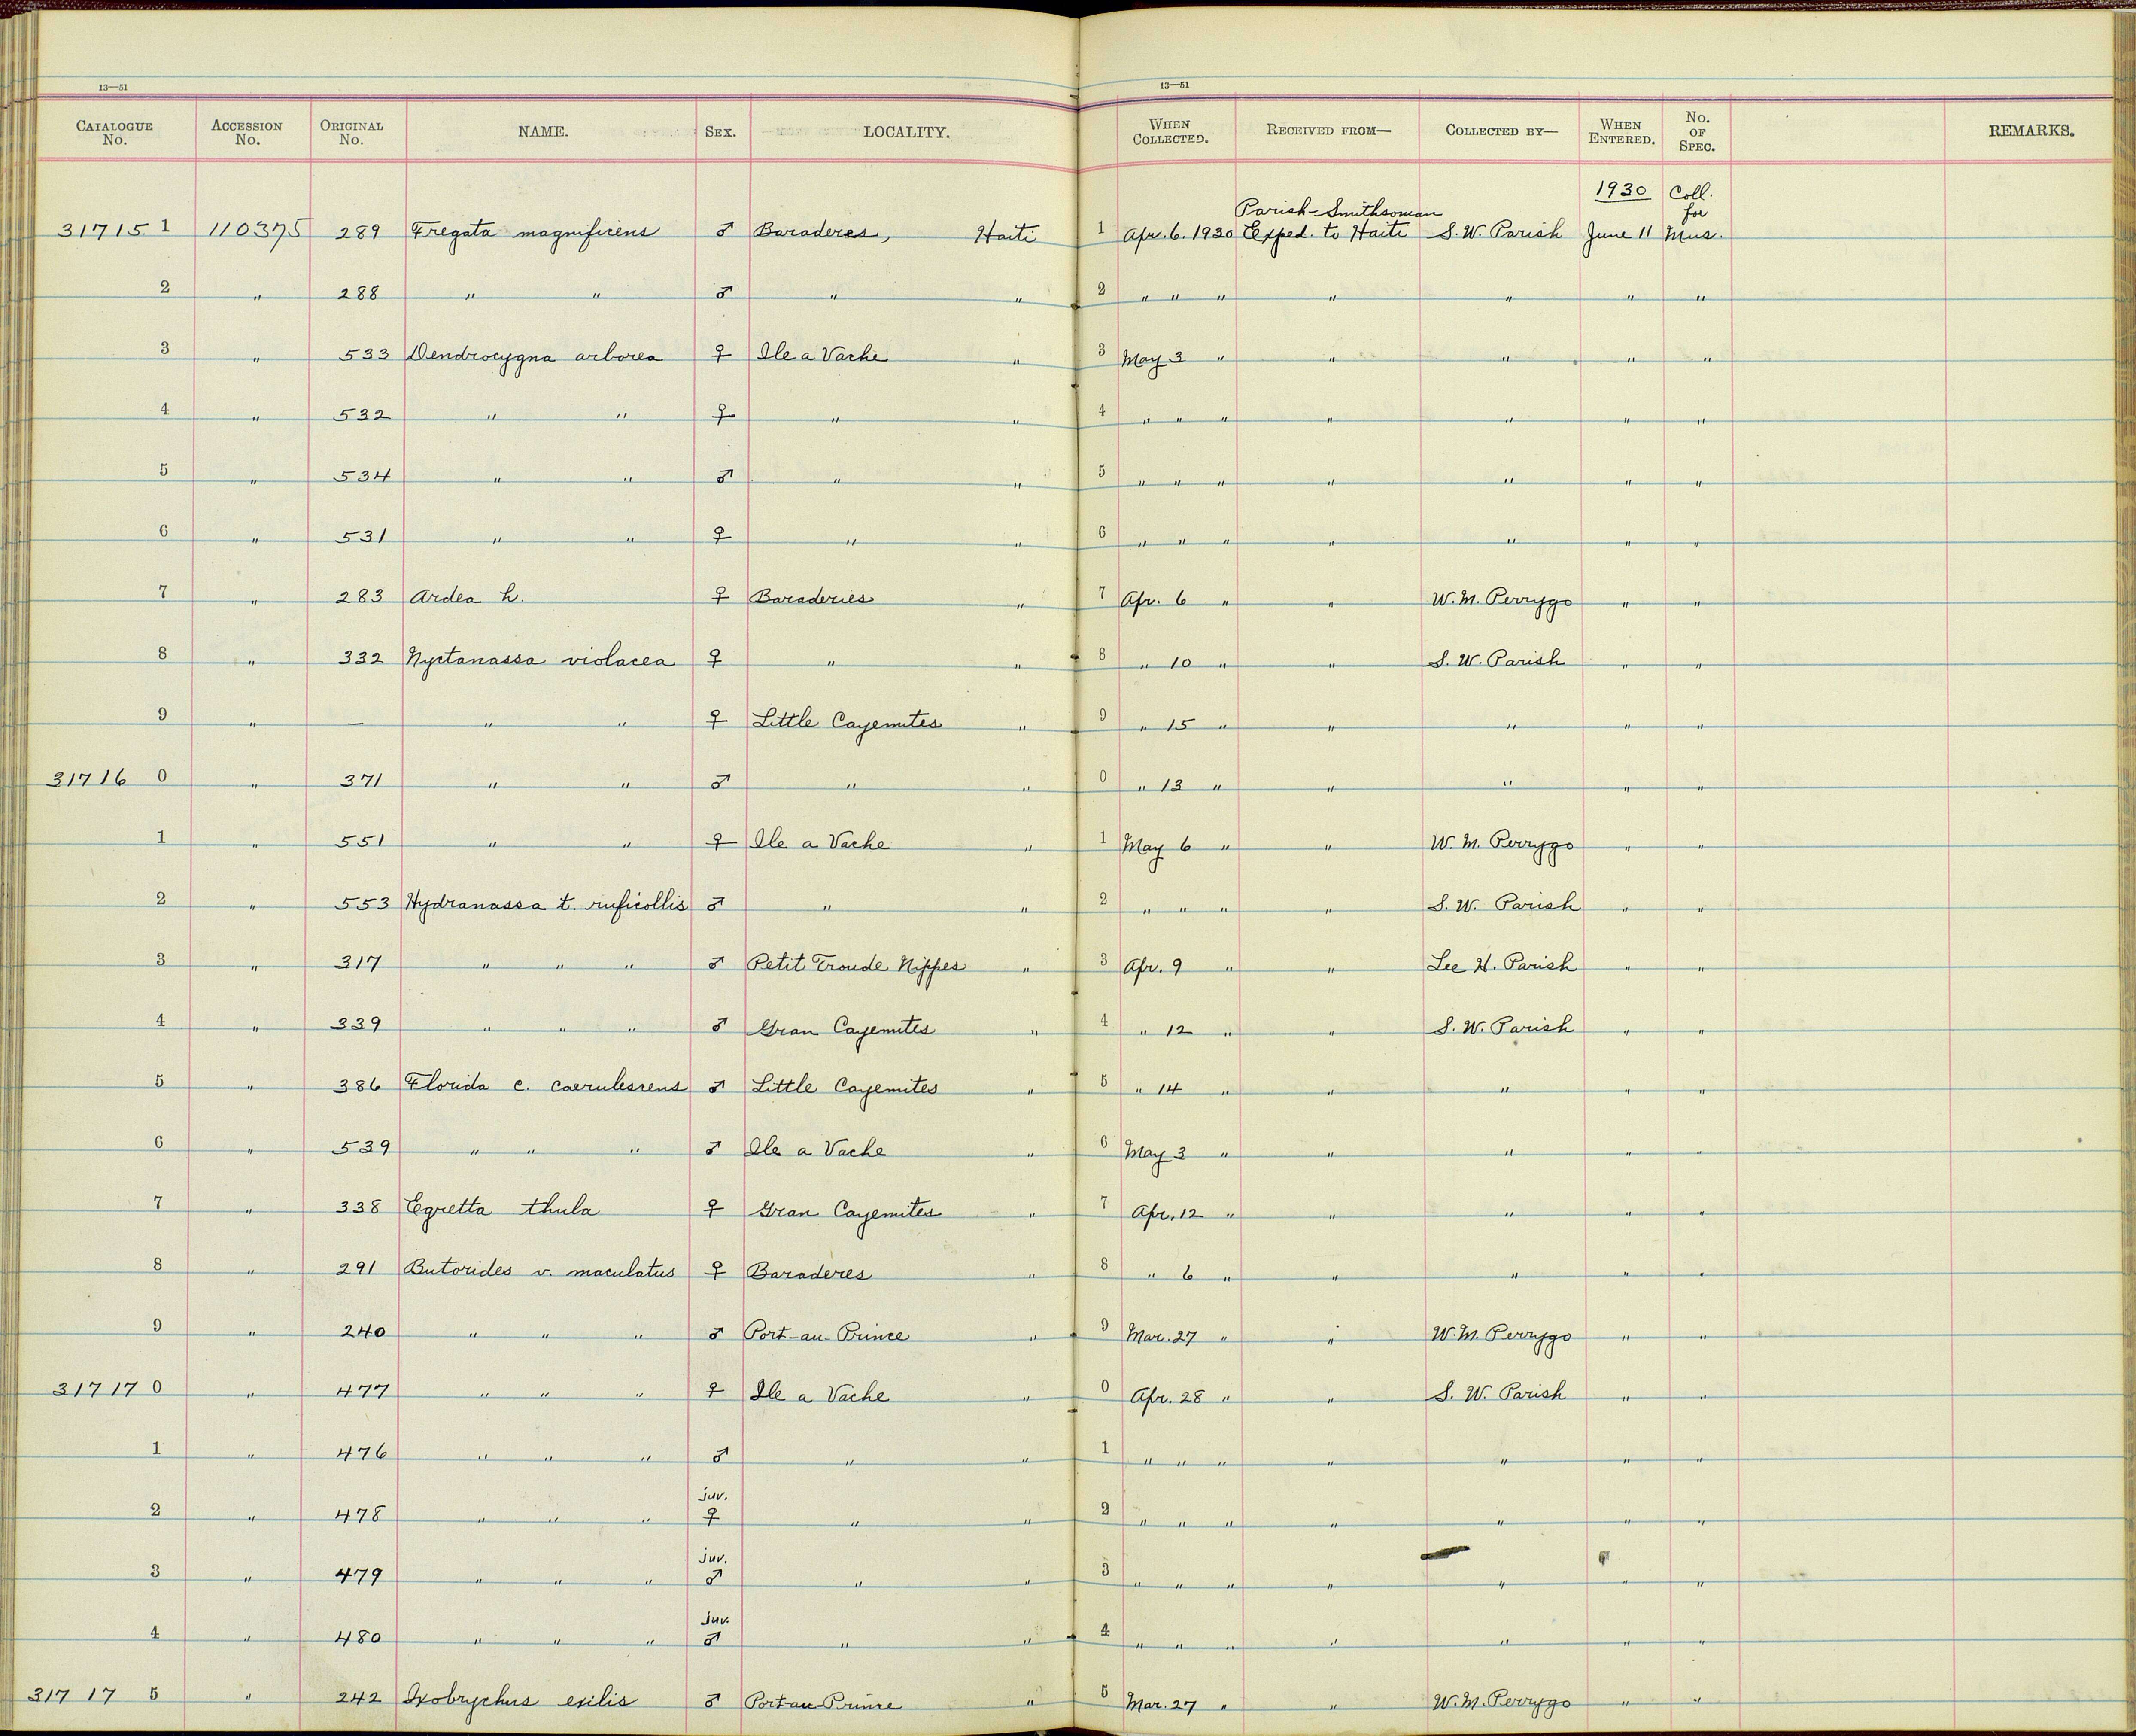 13—51 13—51
CATALOGUE No. ACCESSION No. ORIGINAL No. NAME. SEX. LOCALITY. WHEN COLLECTED. RECEIVED FROM— COLLECTED BY— WHEN ENTERED. No. OF SPEC. REMARKS.
1930 Coll.
Parish-Smithsonian for
31715 1 110375 289 Fregata magnificens ♂ Baraderes, Haiti 1 Apr. 6. 1930 Exped. to Haiti S. W. Parish June 11 Mus.
2 " 288 " " ♂ " " 2 " " " " " " "
3 " 533 Dendrocygna arborea ♀ Ile a Vache " 3 May 3 " " " " "
4 " 532 " " ♀ " " 4 " " " " " " "
5 " 534 " " ♂ " " 5 " " " " " " "
6 " 531 " " ♀ " " 6 " " " " " " "
7 " 283 Ardea h. ♀ Baraderies " 7 Apr. 6 " " W. M. Perrygo " "
8 " 332 Nyctanassa violacea ♀ " " 8 " 10 " " S. W. Parish " "
9 " — " " ♀ Little Cayemites " 9 " 15 " " " " "
31716 0 " 371 " " ♂ " " 0 " 13 " " " " "
1 " 551 " " ♀ Ile a Vache " 1 May 6 " " W. M. Perrygo " "
2 " 553 Hydranassa t. ruficollis ♂ " " 2 " " " " S. W. Parish " "
3 " 317 " " " ♂ Petit Troude Nippes " 3 Apr. 9 " " Lee H. Parish " "
4 " 339 " " " ♂ Gran Cayemites " 4 " 12 " " S. W. Parish " "
5 " 386 Florida c. caerulescens ♂ Little Cayemites " 5 " 14 " " " " "
6 " 539 " " " ♂ Ile a Vache " 6 May 3 " " " " "
7 " 338 Egretta thula ♀ Gran Cayemites " 7 Apr. 12 " " " " "
8 " 291 Butorides v. maculatus ♀ Baraderes " 8 " 6 " " " " "
9 " 240 " " " ♂ Port-au-Prince " 9 Mar. 27 " " W. M. Perrygo " "
31717 0 " 477 " " " ♀ Ile a Vache " 0 Apr. 28 " " S. W. Parish " "
1 " 476 " " " ♂ " " 1 " " " " " " "
juv.
2 " 478 " " " ♀ " " 2 " " " " " " "
juv.
3 " 479 " " " ♂ " " 3 " " " " " " "
juv.
4 " 480 " " " ♂ " " 4 " " " " " " "
31717 5 " 242 Ixobrychus exilis ♂ Port-au-Prince " 5 Mar. 27 " " W. M. Perrygo " "